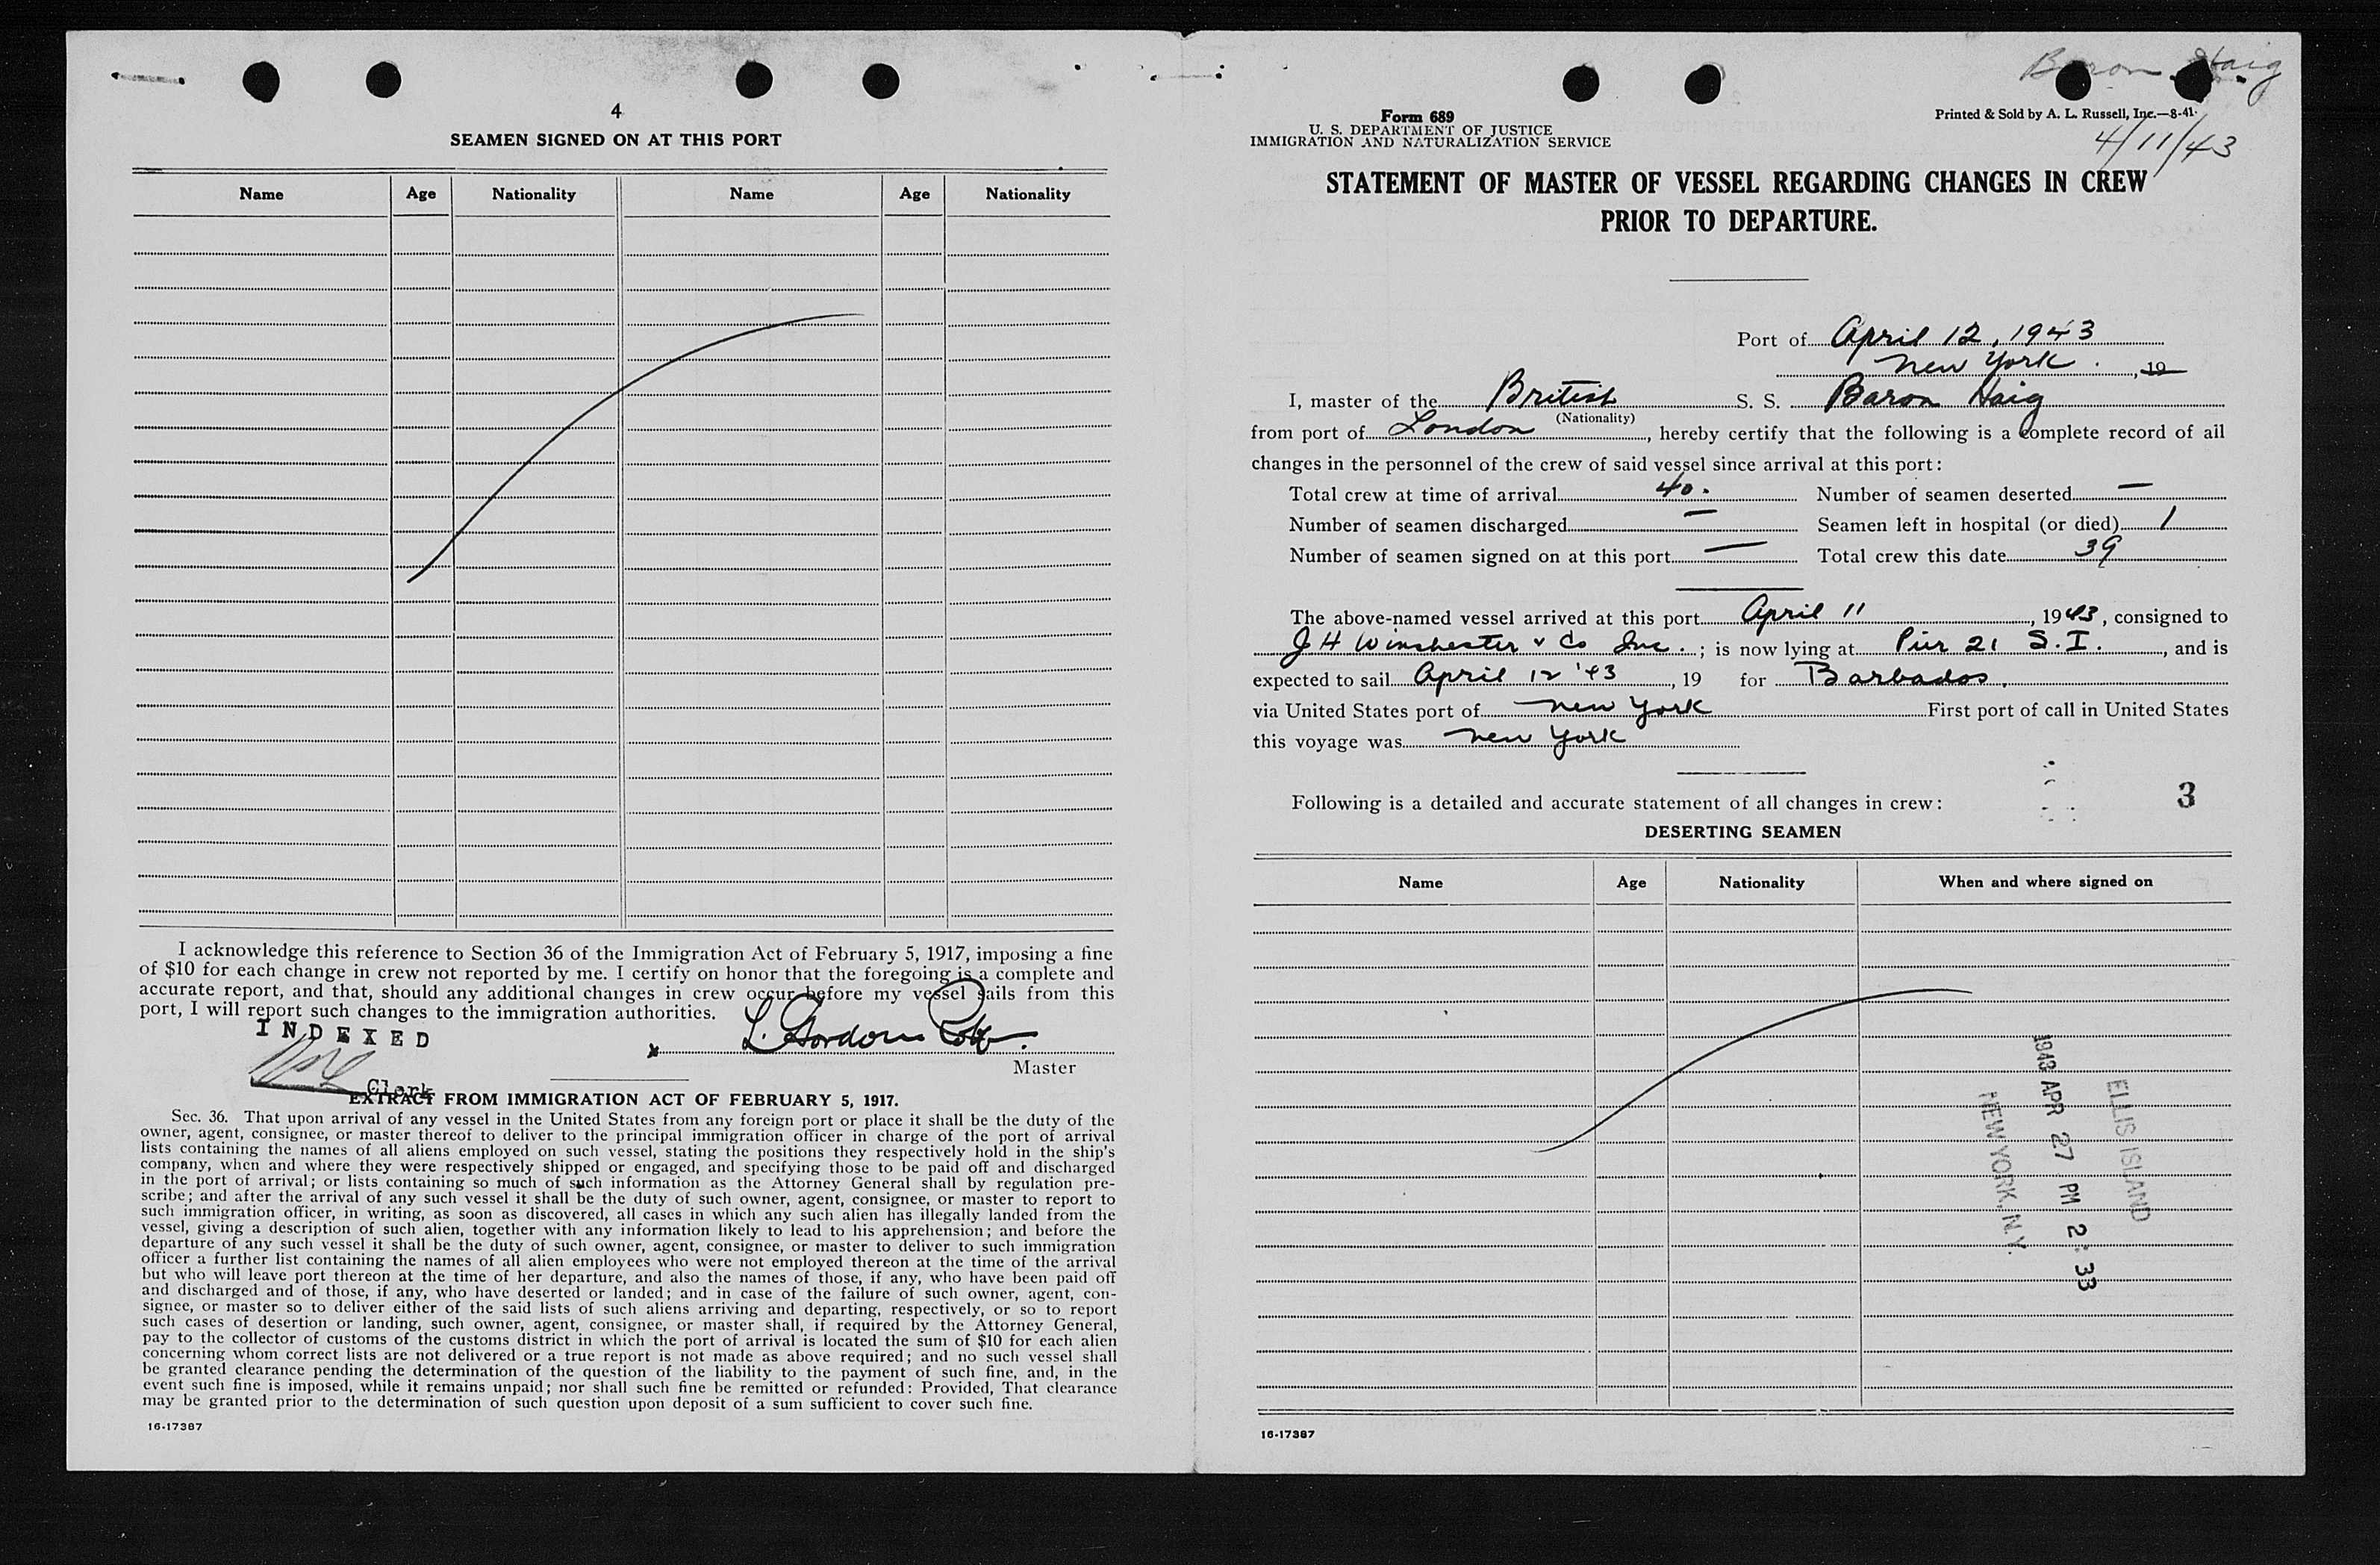 4
SEAMEN SIGNED ON AT THIS PORT
Name Age Nationality Name Age Nationality
I acknowledge this reference to Section 36 of the Immigration Act of February 5, 1917, imposing a fine
of $10 for each change in crew not reported by me. I certify on honor that the foregoing is a complete and
accurate report, and that, should any additional changes in crew occur before my vessel sails from this
port, I will report such changes to the immigration authorities.
INDEXED
L. Gordon
x
Master
Clerk
EXTRACT FROM IMMIGRATION ACT OF FEBRUARY 5, 1917.
Sec. 36. That upon arrival of any vessel in the United States from any foreign port or place it shall be the duty of the
owner, agent, consignee, or master thereof to deliver to the principal immigration officer in charge of the port of arrival
lists containing the names of all aliens employed on such vessel, stating the positions they respectively hold in the ship's
company, when and where they were respectively shipped or engaged, and specifying those to be paid off and discharged
in the port of arrival; or lists containing so much of such information as the Attorney General shall by regulation pre-
scribe; and after the arrival of any such vessel it shall be the duty of such owner, agent, consignee, or master to report to
such immigration officer, in writing, as soon as discovered, all cases in which any such alien has illegally landed from the
vessel, giving a description of such alien, together with any information likely to lead to his apprehension; and before the
departure of any such vessel it shall be the duty of such owner, agent, consignee, or master to deliver to such immigration
officer a further list containing the names of all alien employees who were not employed thereon at the time of the arrival
but who will leave port thereon at the time of her departure, and also the names of those, if any, who have been paid off
and discharged and of those, if any, who have deserted or landed; and in case of the failure of such owner, agent, con-
signee, or master so to deliver either of the said lists of such aliens arriving and departing, respectively, or so to report
such cases of desertion or landing, such owner, agent, consignee, or master shall, if required by the Attorney General,
pay to the collector of customs of the customs district in which the port of arrival is located the sum of $10 for each alien
concerning whom correct lists are not delivered or a true report is not made as above required; and no such vessel shall
be granted clearance pending the determination of the question of the liability to the payment of such fine, and, in the
event such fine is imposed, while it remains unpaid; nor shall such fine be remitted or refunded: Provided, That clearance
may be granted prior to the determination of such question upon deposit of a sum sufficient to cover such fine.
16-17387
Baron Haig
Form 689
Printed & Sold by A. L. Russell, Inc.—8-41.
U. S. DEPARTMENT OF JUSTICE
IMMIGRATION AND NATURALIZATION SERVICE
4/11/43
STATEMENT OF MASTER OF VESSEL REGARDING CHANGES IN CREW
PRIOR TO DEPARTURE.
Port of April 12, 1943
New York. , 19
I, master of the British S. S. Baron Haig
(Nationality)
from port of London, hereby certify that the following is a complete record of all
changes in the personnel of the crew of said vessel since arrival at this port:
Total crew at time of arrival 40. Number of seamen deserted —
Number of seamen discharged — Seamen left in hospital (or died) 1
Number of seamen signed on at this port — Total crew this date 39
The above-named vessel arrived at this port April 11, 1943, consigned to
J H Winchester & Co Inc.; is now lying at Pier 21 S.I., and is
expected to sail April 12 '43, 19 for Barbados.
via United States port of New York First port of call in United States
this voyage was New York
Following is a detailed and accurate statement of all changes in crew:
3
DESERTING SEAMEN
Name Age Nationality When and where signed on
ELLIS ISLAND
1943 APR 27 PM 2:33
NEW YORK, N.Y.
16-17387